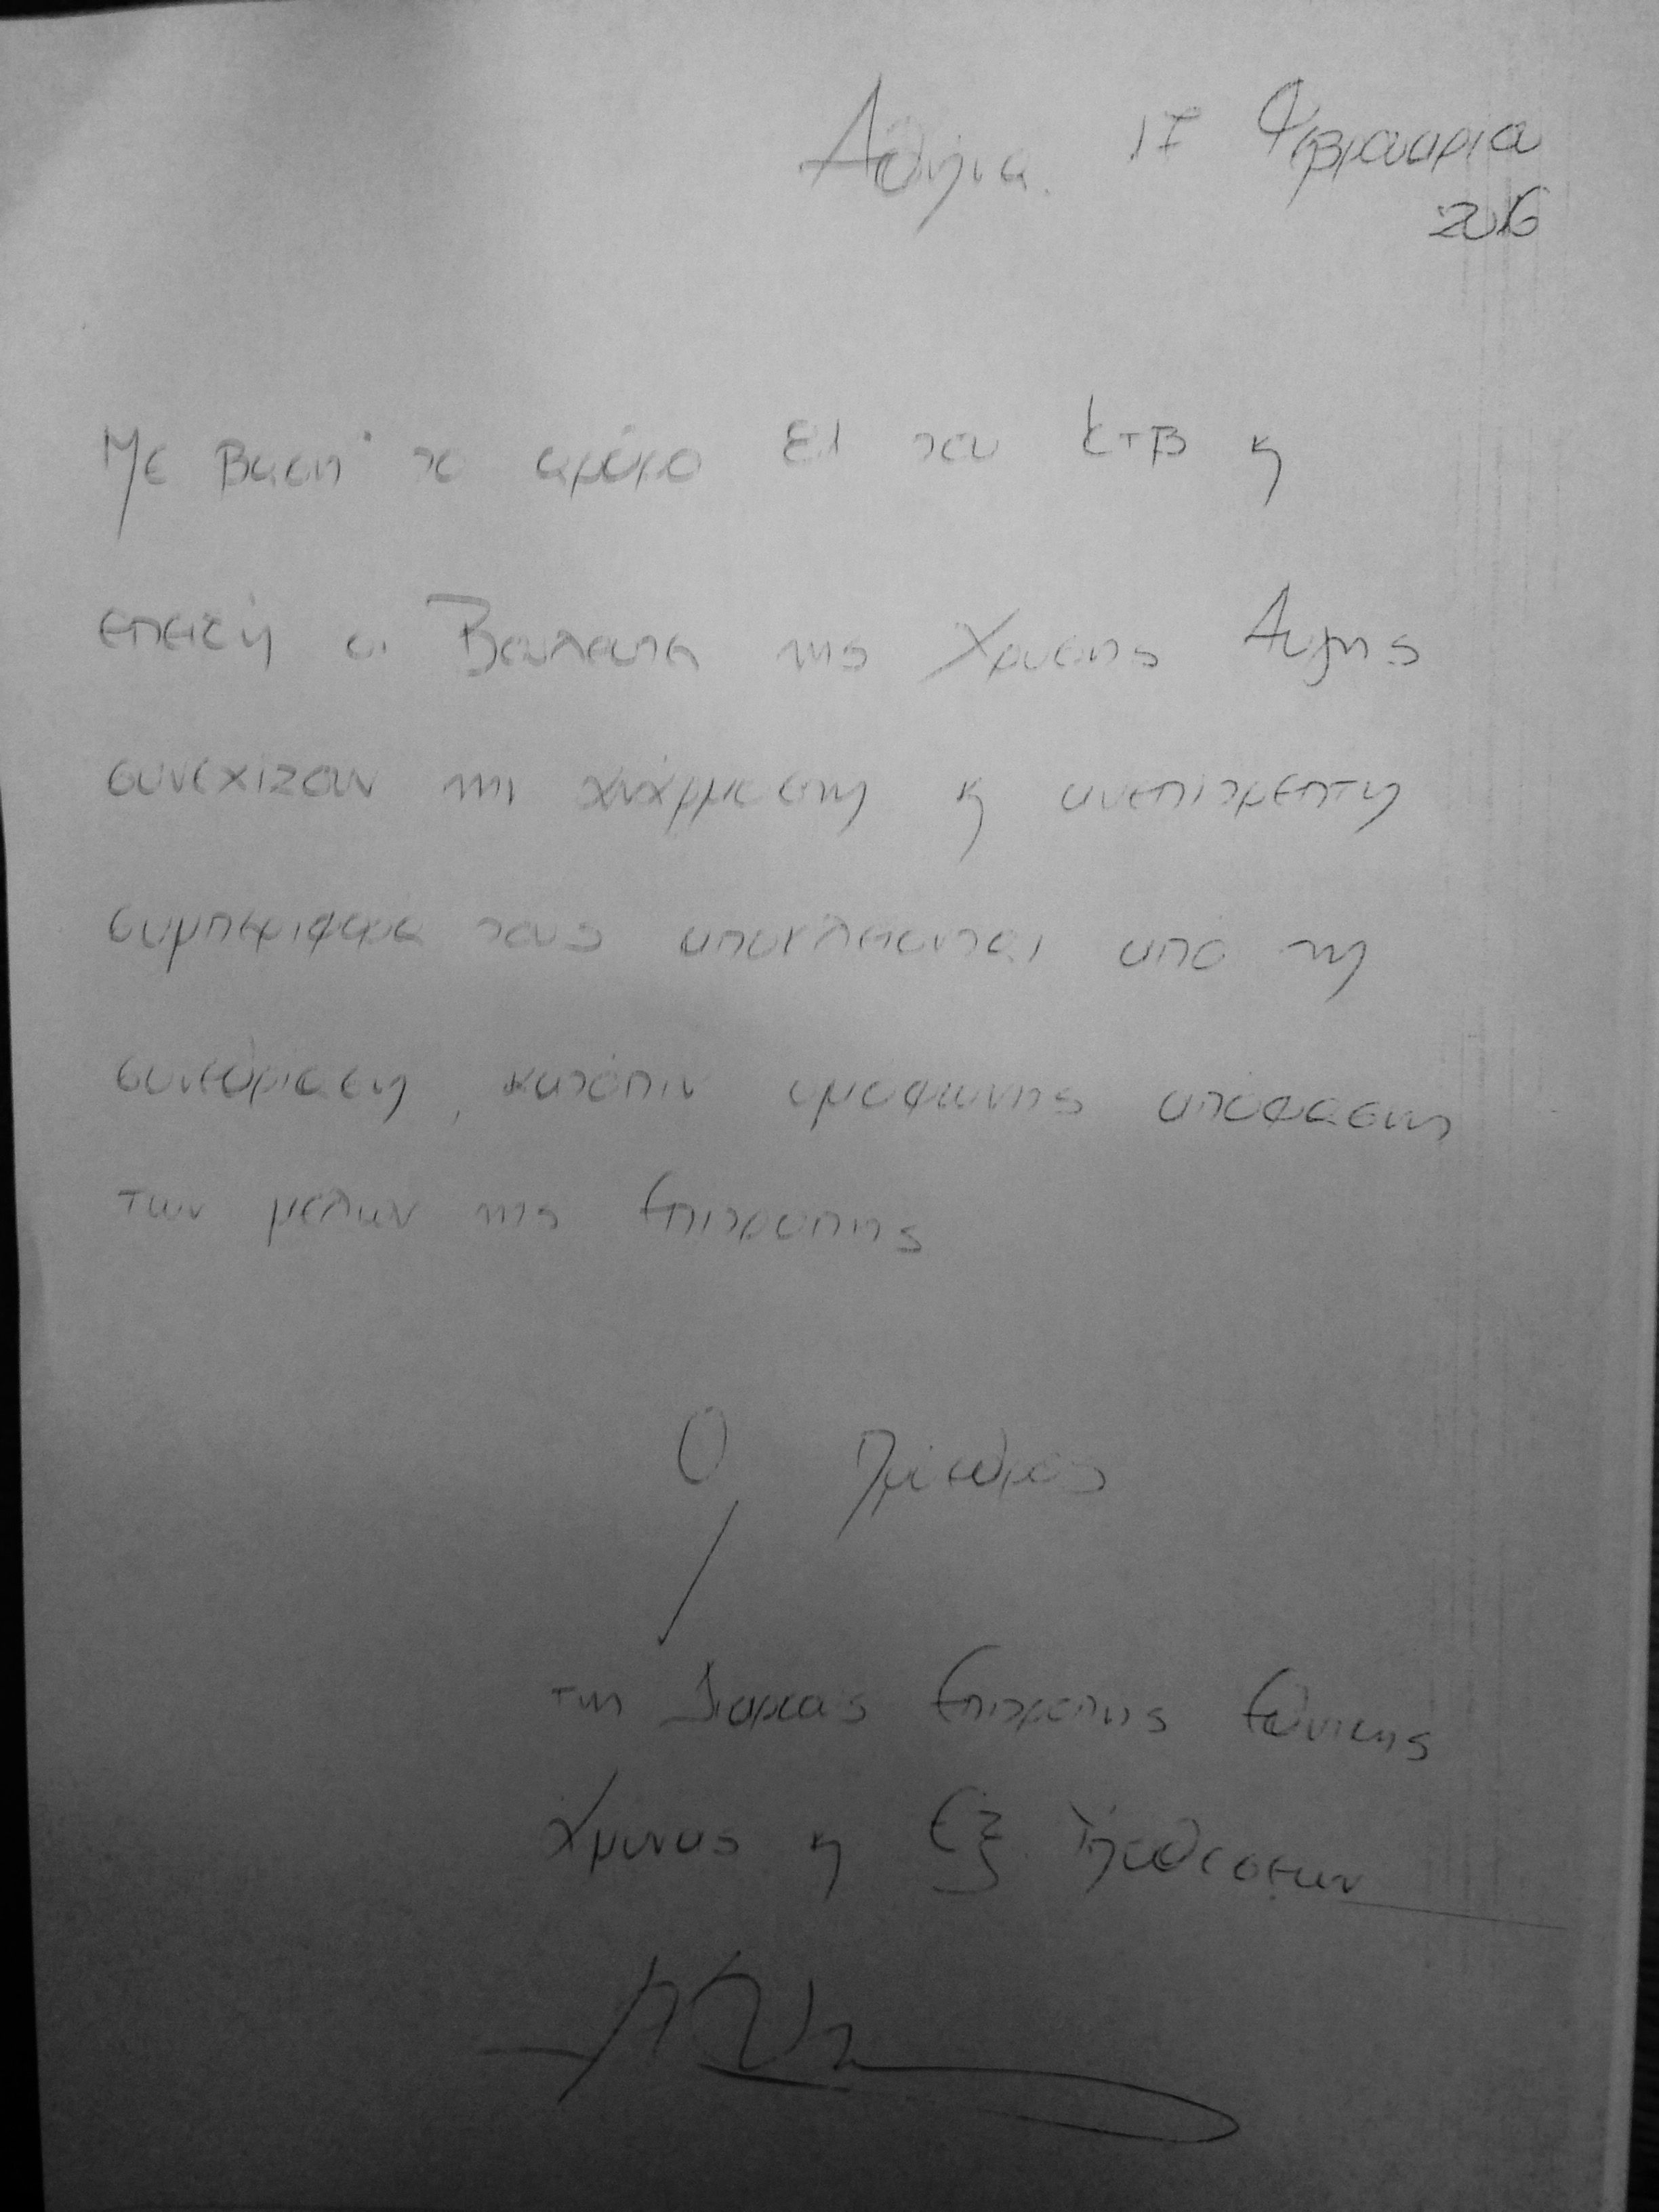 Αθήνα 17 Φεβρουαρίου
2016
Με βάση το άρθρο 81 του ΚτΒ η
επειδή οι Βουλευτές της Χρυσής Αυγής
συνεχίζουν την η ανεπίτρεπτη
συμπεριφορά τους αποκλείονται από τη
συνεδρίαση, κατόπιν ομόφωνης απόφασης
των μελών της Επιτροπής
Ο Πρόεδρος
της Διαρκούς Επιτροπής Εθνικής
Άμυνας η Εξ. Υποθέσεων